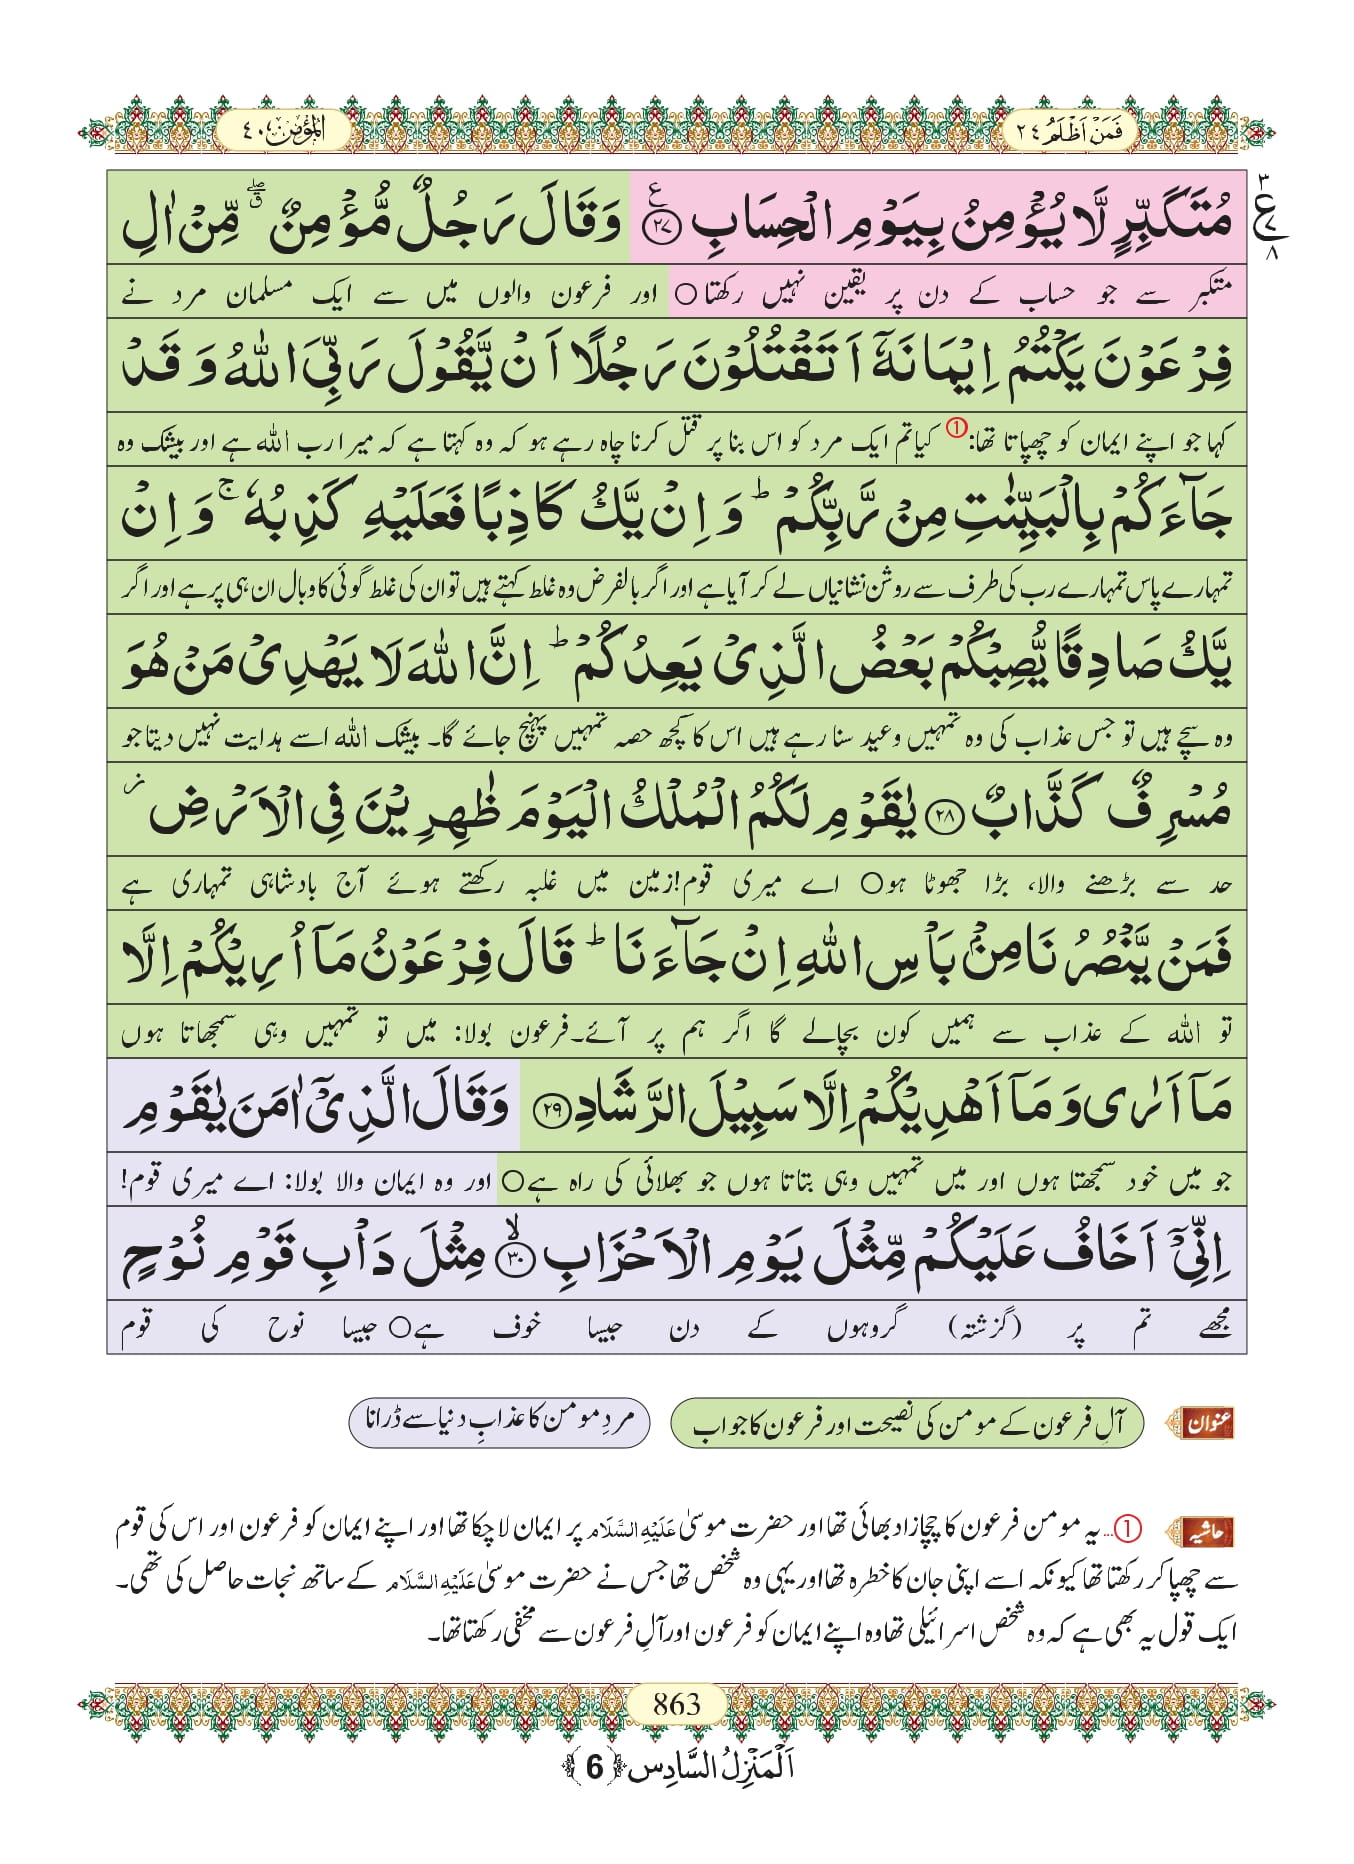 فَمَنْ اَظْلَمُ ٢٤
اَلْمُؤْمِن ٤٠
مُتَكَبِّرٍ لَّا يُؤْمِنُ بِيَوْمِ الْحِسَابِ ﴿٢٧﴾ ع وَقَالَ رَجُلٌ مُّؤْمِنٌ مِّنْ اٰلِ
٣ ع ٧ ٨
متکبر سے جو حساب کے دن پر یقین نہیں رکھتا○ اور فرعون والوں میں سے ایک مسلمان مرد نے
فِرْعَوْنَ يَكْتُمُ اِيْمَانَهٗۤ اَتَقْتُلُوْنَ رَجُلًا اَنْ يَّقُوْلَ رَبِّيَ اللّٰهُ وَقَدْ
کہا جو اپنے ایمان کو چھپاتا تھا:① کیا تم ایک مرد کو اس بنا پر قتل کرنا چاہ رہے ہو کہ وہ کہتا ہے کہ میرا رب اللہ ہے اور بیشک وہ
جَآءَكُمْ بِالْبَيِّنٰتِ مِنْ رَّبِّكُمْ ؕ وَاِنْ يَّكُ كَاذِبًا فَعَلَيْهِ كَذِبُهٗ ۚ وَاِنْ
تمہارے پاس تمہارے رب کی طرف سے روشن نشانیاں لے کر آیا ہے اور اگر بالفرض وہ غلط کہتے ہیں تو ان کی غلط گوئی کا وبال ان ہی پر ہے اور اگر
يَّكُ صَادِقًا يُّصِبْكُمْ بَعْضُ الَّذِيْ يَعِدُكُمْ ؕ اِنَّ اللّٰهَ لَا يَهْدِيْ مَنْ هُوَ
وہ سچے ہیں تو جس عذاب کی وہ تمہیں وعید سنا رہے ہیں اس کا کچھ حصہ تمہیں پہنچ جائے گا۔ بیشک اللہ اسے ہدایت نہیں دیتا جو
مُسْرِفٌ كَذَّابٌ ﴿٢٨﴾ يٰقَوْمِ لَكُمُ الْمُلْكُ الْيَوْمَ ظٰهِرِيْنَ فِي الْاَرْضِ ز
حد سے بڑھنے والا، بڑا جھوٹا ہو○ اے میری قوم! زمین میں غلبہ رکھتے ہوئے آج بادشاہی تمہاری ہے
فَمَنْ يَّنْصُرُنَا مِنْۢ بَاْسِ اللّٰهِ اِنْ جَآءَنَا ؕ قَالَ فِرْعَوْنُ مَاۤ اُرِيْكُمْ اِلَّا
تو اللہ کے عذاب سے ہمیں کون بچالے گا اگر ہم پر آئے۔ فرعون بولا: میں تو تمہیں وہی سمجھاتا ہوں
مَاۤ اَرٰى وَمَاۤ اَهْدِيْكُمْ اِلَّا سَبِيْلَ الرَّشَادِ ﴿٢٩﴾ وَقَالَ الَّذِيْۤ اٰمَنَ يٰقَوْمِ
جو میں خود سمجھتا ہوں اور میں تمہیں وہی بتاتا ہوں جو بھلائی کی راہ ہے○ اور وہ ایمان والا بولا: اے میری قوم!
اِنِّيْۤ اَخَافُ عَلَيْكُمْ مِّثْلَ يَوْمِ الْاَحْزَابِ ﴿٣٠﴾ ۙ مِثْلَ دَاْبِ قَوْمِ نُوْحٍ
مجھے تم پر (گزشتہ) گروہوں کے دن جیسا خوف ہے○ جیسا نوح کی قوم
عنوان آلِ فرعون کے مومن کی نصیحت اور فرعون کا جواب مردِ مومن کا عذابِ دنیا سے ڈرانا
حاشیہ ①... یہ مومن فرعون کا چچازاد بھائی تھا اور حضرت موسیٰ عَلَیْہِ السَّلَام پر ایمان لا چکا تھا اور اپنے ایمان کو فرعون اور اس کی قوم
سے چھپا کر رکھتا تھا کیونکہ اسے اپنی جان کا خطرہ تھا اور یہی وہ شخص تھا جس نے حضرت موسیٰ عَلَیْہِ السَّلَام کے ساتھ نجات حاصل کی تھی۔
ایک قول یہ بھی ہے کہ وہ شخص اسرائیلی تھا وہ اپنے ایمان کو فرعون اور آلِ فرعون سے مخفی رکھتا تھا۔
863
اَلْمَنْزِلُ السَّادِس ﴿6﴾